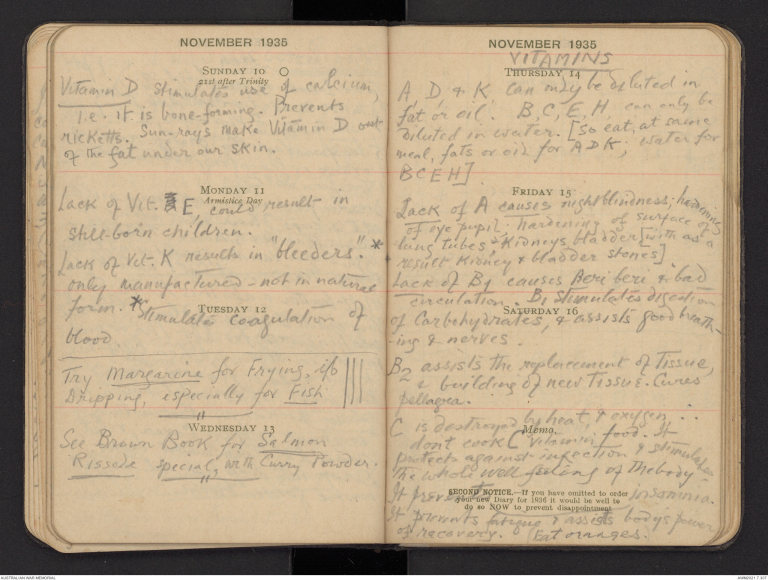 NOVEMBER 1935
SUNDAY 10
21st after Trinity
Vitamin D stimulates use of calcium,
i.e. it is bone-forming. Prevents
ricketts. Sun-rays make Vitamin D out
of the fat under our skin.
MONDAY 11
Armistice Day
Lack of Vit. E could result in
still-born children.
Lack of Vit. K results in "bleeders". *
only manufactured - not in natural
form. * Stimulates coagulation of
TUESDAY 12
blood
Try Margarine for Frying, i/o
Dripping, especially for Fish
WEDNESDAY 13
See Brown Book for Salmon
Rissole special, with Curry Powder.
NOVEMBER 1935
VITAMINS
THURSDAY 14
A, D & K can may be diluted in
fat or oil. B, C, E, H, can only be
diluted in water. [So eat, at same
meal, fats or oil for A D K; water for
B C E H]
FRIDAY 15
Lack of A causes nightblindness; hardening
of eye pupil; hardening of surface of
lung tubes & Kidneys bladder [with as a
result Kidney & bladder stones]
Lack of B1 causes Beri beri & bad
circulation. B1 stimulates digestion
SATURDAY 16
of Carbohydrates, & assists good breath-
-ing & nerves.
B2 assists the replacement of Tissue,
& building of new Tissue. Cures
pellagra.
C is destroyed by heat, & oxygen ..
Memo.
dont cook C vitamin food. It
protects against infection & stimulates
the whole well feeling of the body.
SECOND NOTICE.—If you have omitted to order
your new Diary for 1936 it would be well to
do so NOW to prevent disappointment
It prevents insomnia.
It prevents fatigue & assists bodys power
of recovery. (Eat oranges.
AUSTRALIAN WAR MEMORIAL